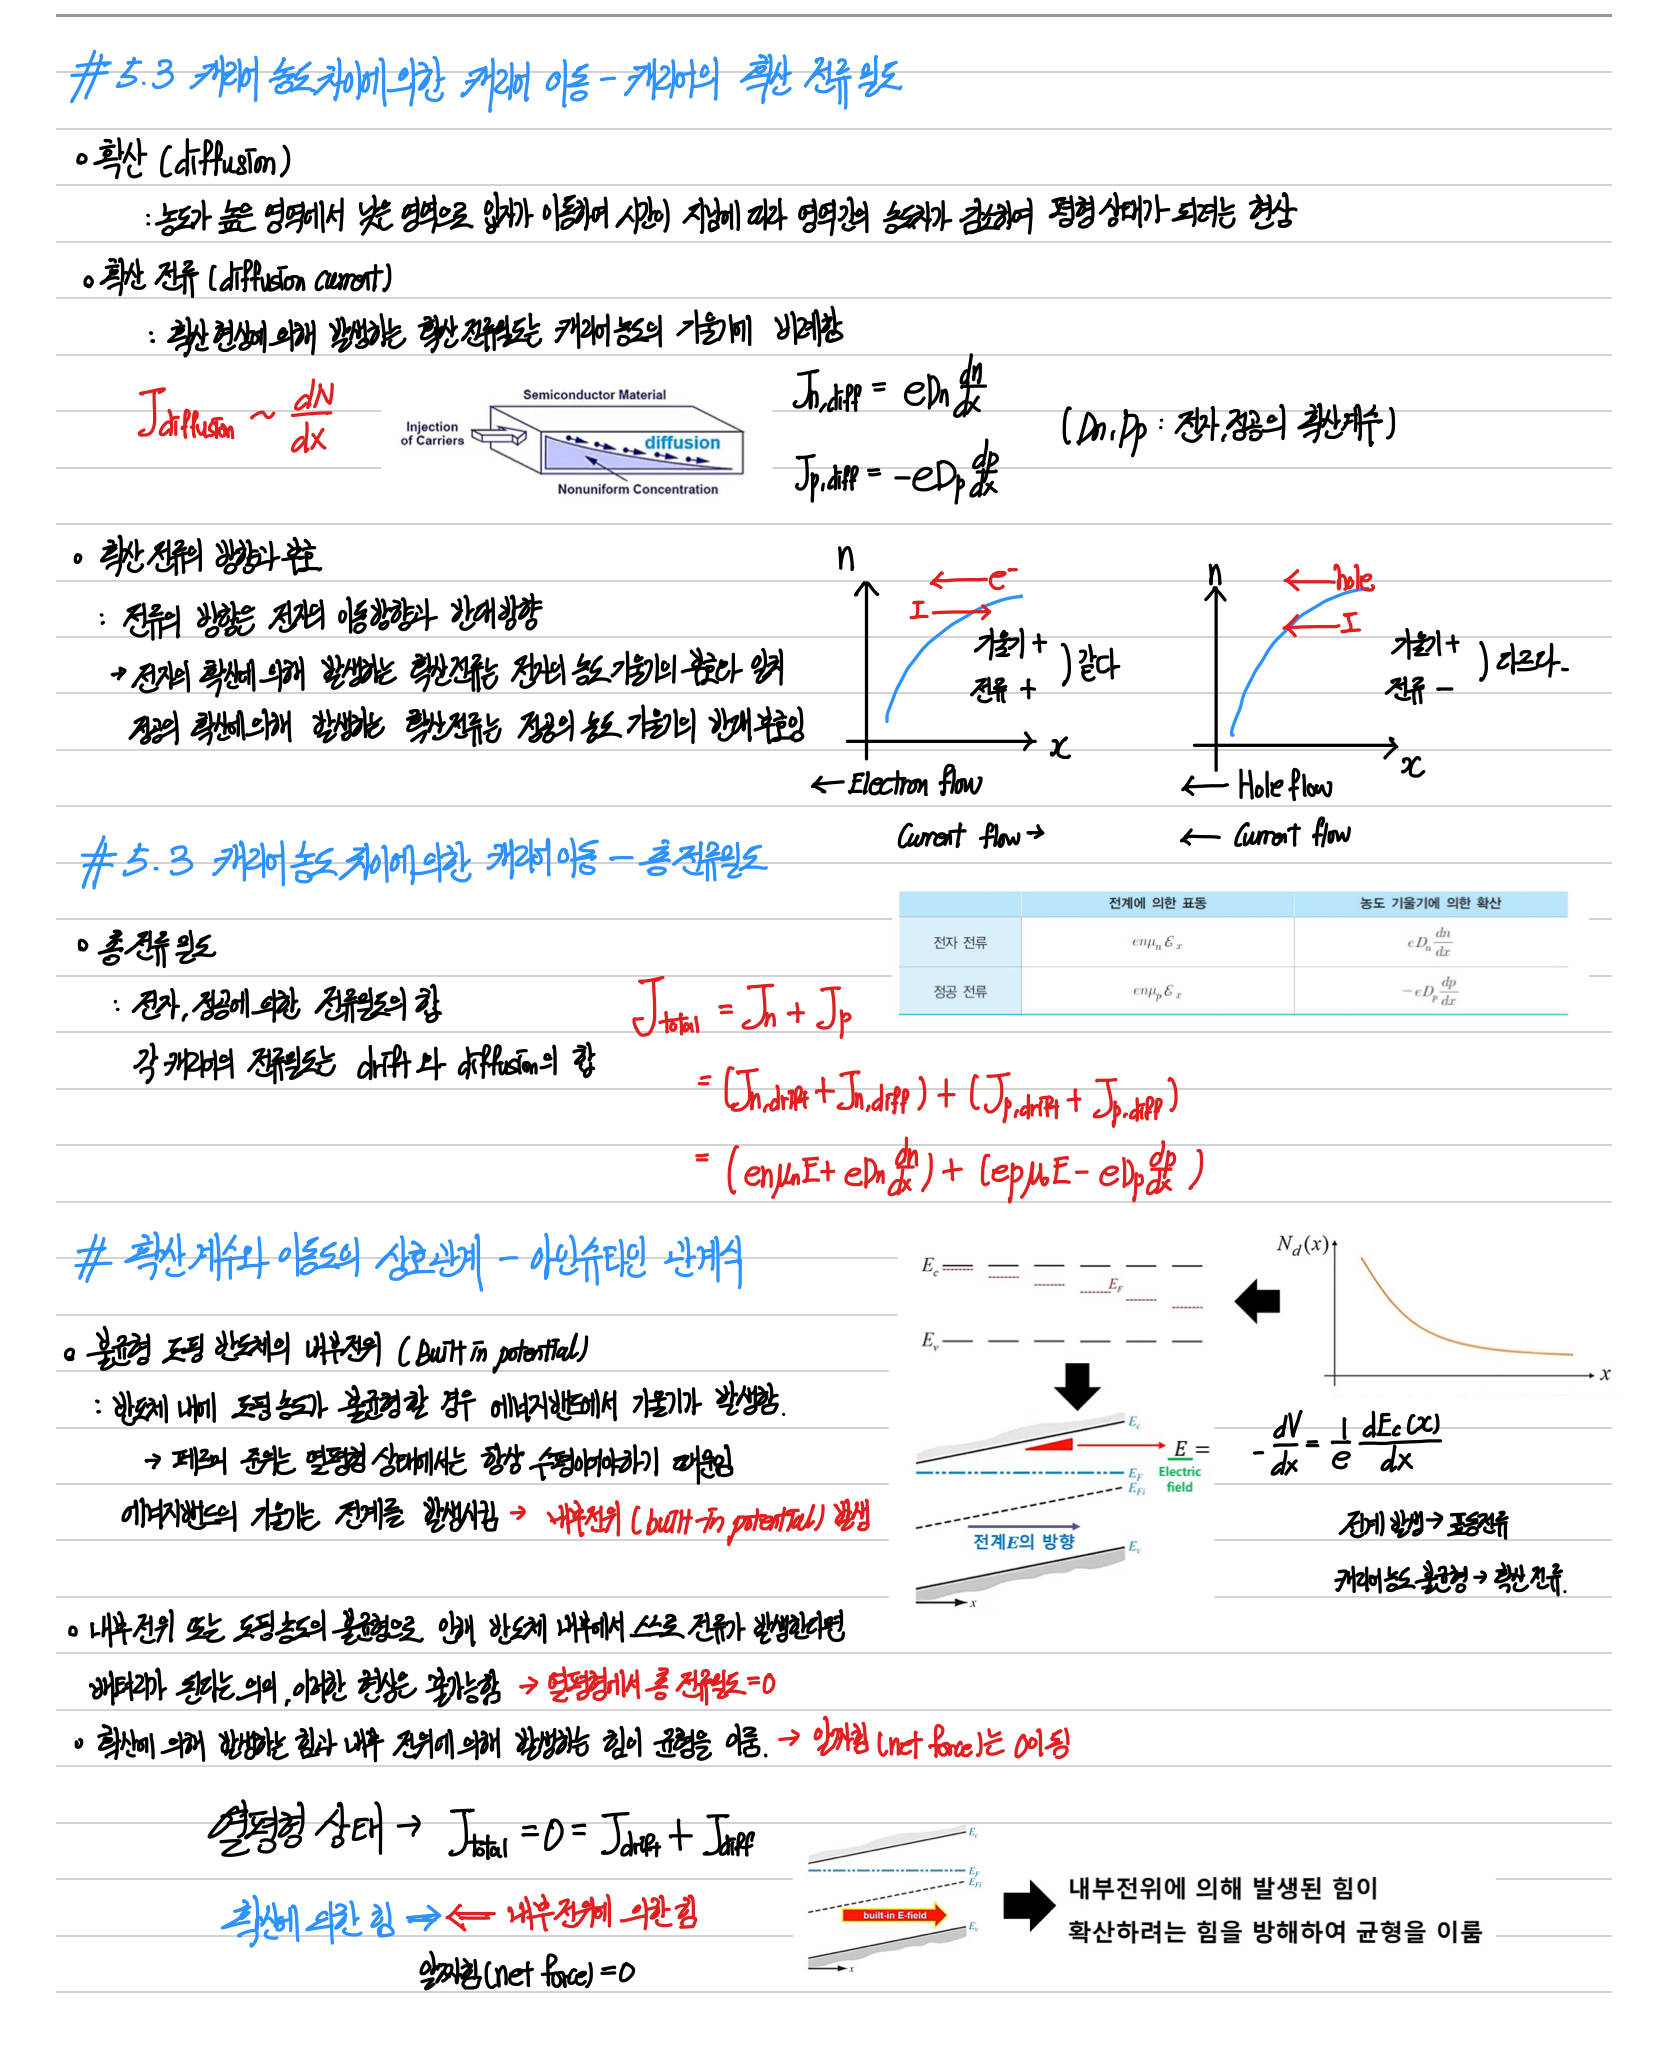 # 5.3 캐리어 농도차이에 의한 캐리어 이동 - 캐리어의 확산 전류밀도
∘ 확산 (diffusion)
: 농도가 높은 영역에서 낮은 영역으로 입자가 이동하여 시간이 지남에 따라 영역간의 농도차가 감소하여 평형 상태가 되려는 현상
∘ 확산 전류 (diffusion current)
: 확산현상에 의해 발생하는 확산전류밀도는 캐리어농도의 기울기에 비례함
J_diffusion ~ dN/dx
Semiconductor Material
Injection of Carriers
diffusion
Nonuniform Concentration
J_n,diff = eDn dn/dx
J_p,diff = -eDp dp/dx
(Dn, Dp : 전자, 정공의 확산계수)
∘ 확산 전류의 방향과 부호
: 전류의 방향은 전자의 이동방향과 반대방향
→ 전자의 확산에 의해 발생하는 확산전류는 전자의 농도 기울기의 부호와 일치
정공의 확산에 의해 발생하는 확산전류는 정공의 농도 기울기의 반대부호임
n
← e⁻
I →
기울기 +
전류 +
) 같다
x
← Electron flow
Current flow →
n
← hole
← I
기울기 +
전류 -
) 다르다.
x
← Hole flow
← Current flow
# 5.3 캐리어 농도 차이에 의한 캐리어 이동 - 총 전류밀도
전계에 의한 표동 농도 기울기에 의한 확산
전자 전류 enμ_n ℰ_x eD_n dn/dx
정공 전류 enμ_p ℰ_x -eD_p dp/dx
∘ 총 전류 밀도
: 전자, 정공에 의한 전류밀도의 합
각 캐리어의 전류밀도는 drift 와 diffusion의 합
J_total = J_n + J_p
= (J_n,drift + J_n,diff) + (J_p,drift + J_p,diff)
= (enμnE + eDn dn/dx) + (epμpE - eDp dp/dx)
# 확산계수와 이동도의 상호관계 - 아인슈타인 관계식
∘ 불균형 도핑 반도체의 내부전위 (built in potential)
: 반도체 내에 도핑농도가 불균형할 경우 에너지밴드에서 기울기가 발생함.
→ 페르미 준위는 열평형 상태에서는 항상 수평이어야하기 때문임
에너지밴드의 기울기는 전계를 발생시킴 → 내부전위 (built-in potential) 발생
E_c
E_F
E_v
N_d(x)
x
E_c
E_F
E_Fi
전계E의 방향
E_v
x
E =
Electric field
-dV/dx = 1/e dEc(x)/dx
전계 발생 → 표동전류
캐리어농도 불균형 → 확산 전류.
∘ 내부 전위 또는 도핑농도의 불균형으로 인해 반도체 내부에서 스스로 전류가 발생한다면
배터리가 된다는 의미, 이러한 현상은 불가능함 → 열평형에서 총 전류밀도 = 0
∘ 확산에 의해 발생하는 힘과 내부 전위에 의해 발생하는 힘이 균형을 이룸. → 알짜힘 (net force)는 0이 됨
열평형 상태 → J_total = 0 = J_drift + J_diff
확산에 의한 힘 ⇒ ⇐ 내부전위에 의한 힘
알짜힘(net force) = 0
E_c
E_F
E_Fi
built-in E-field
E_v
x
내부전위에 의해 발생된 힘이
확산하려는 힘을 방해하여 균형을 이룸